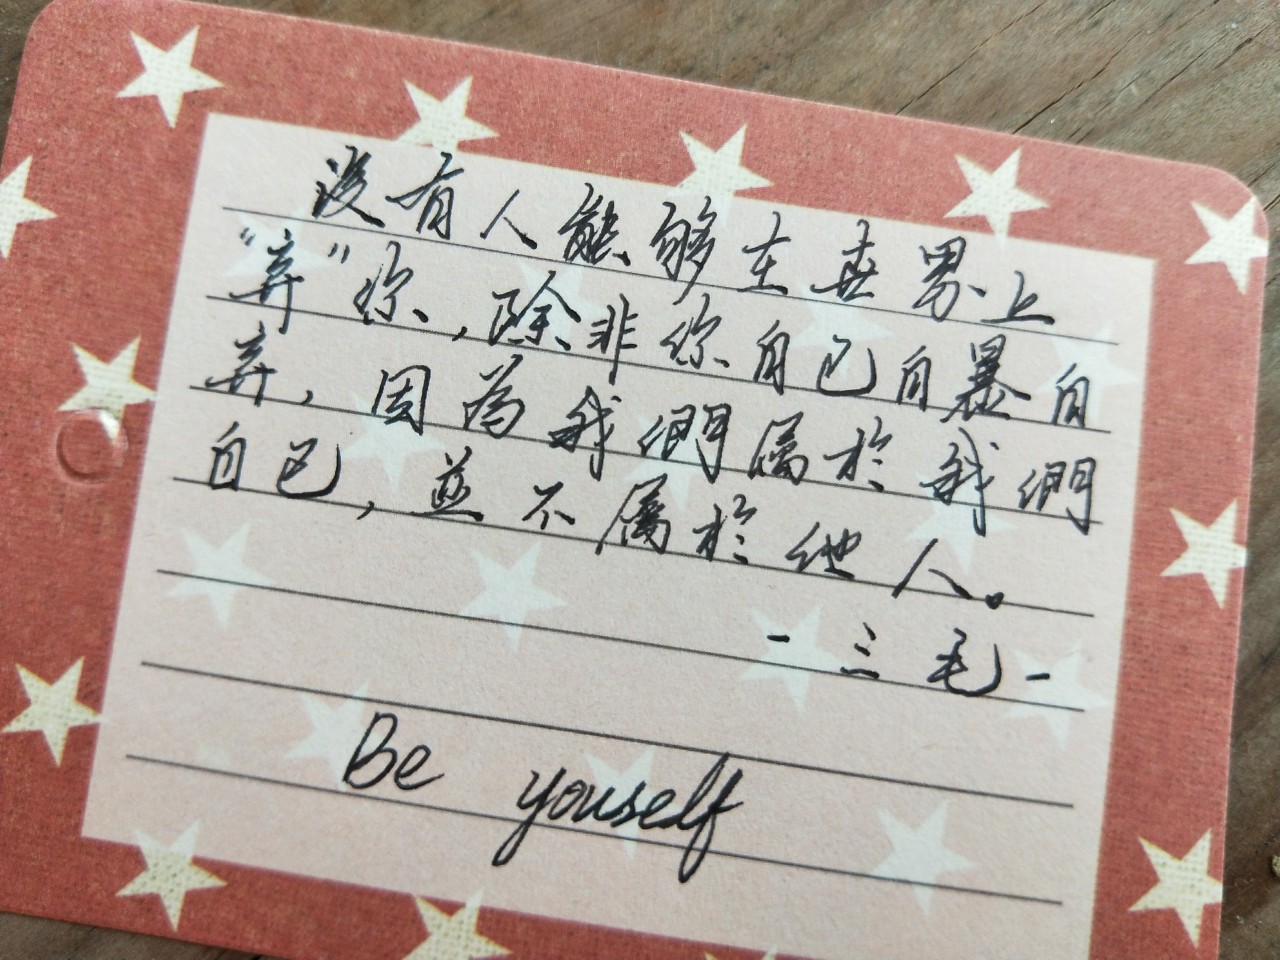 沒有人能夠在世界上
“棄”你，除非你自己自暴自
棄，因為我們屬於我們
自己，並不屬於他人。
- 三毛 -
Be youself